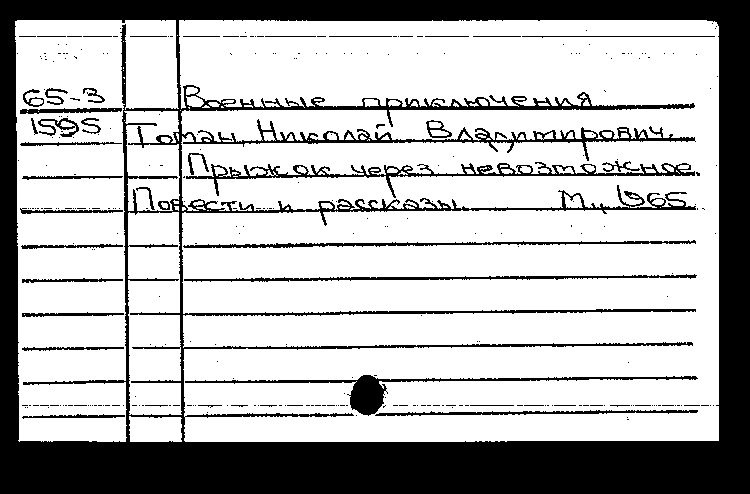 65-3 Военные приключения
1595 Томан, Николай Владимирович.
Прыжок через невозможное
Повести и рассказы. М., 1965